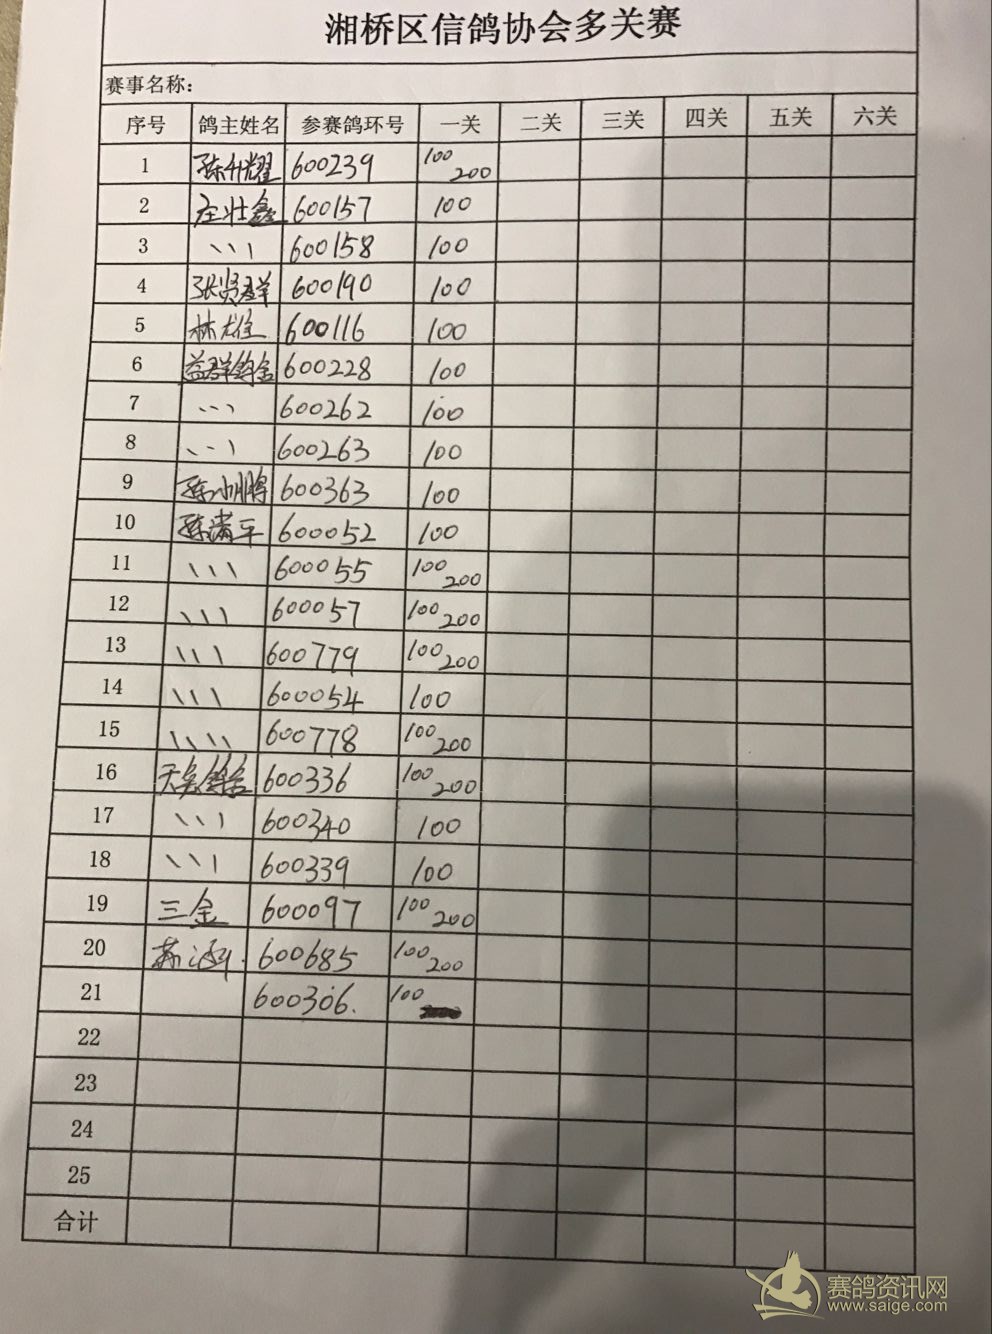 湘桥区信鸽协会多关赛
赛事名称：
序号 鸽主姓名 参赛鸽环号 一关 二关 三关 四关 五关 六关
1 陈升耀 600239 100 200
2 庄壮鑫 600157 100
3 、、、 600158 100
4 张贤群 600190 100
5 林雄 600116 100
6 益群鸽舍 600228 100
7 、、、 600262 100
8 、、、 600263 100
9 陈小鹏 600363 100
10 陈满平 600052 100
11 、、、 600055 100 200
12 、、、 600057 100 200
13 、、、 600779 100 200
14 、、、 600054 100
15 、、、、 600778 100 200
16 600336 100 200
17 、、、 600340 100
18 、、、 600339 100
19 三金 600097 100 200
20 600685 100 200
21 600306. 100
22
23
24
25
合计
赛鸽资讯网
www.saige.com